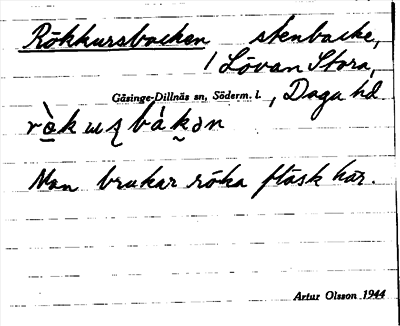 Rökkursbacken stenbacke,
/ Lövan Stora,
Gåsinge-Dillnäs sn, Söderm. l., Daga hd
Man brukar röka fläsk här.
Artur Olsson 1944